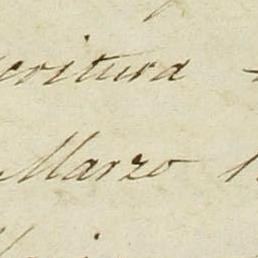 critura
Marzo 1